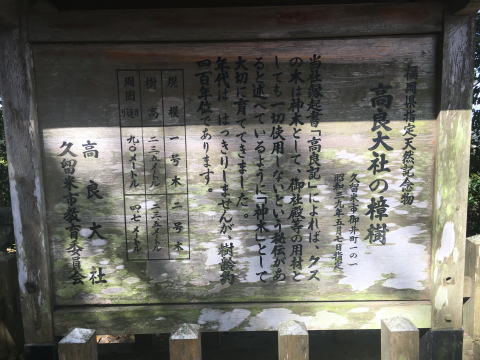 福岡県指定天然記念物
高良大社の樟樹
久留米市御井町一の一
昭和二九年五月七日指定
当社縁起書「高良記」によれば、クス
の木は神木として、御社殿等の用材と
しても一切使用しないという秘伝があ
ると述べているように「神木」として
大切に育ててきました。
年代は はっきりしませんが、樹齢約
四百年位であります。
規模 一号木 二号木
樹高
高良大社
久留米市教育委員会